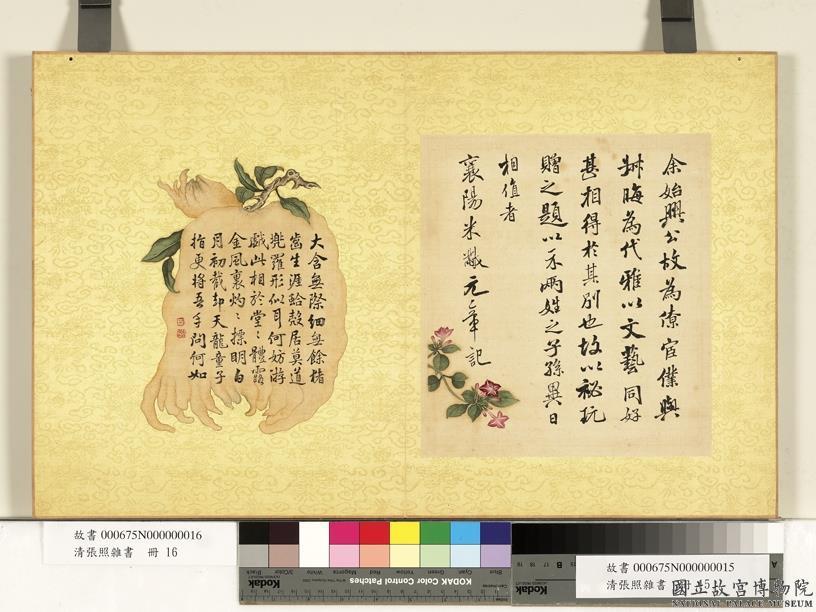 余始興公故為僚宦僕與
叔晦為代雅以文藝同好
甚相得於其別也故以祕玩
贈之題以示兩姓之子孫異日
相值者
襄陽米黻元章記
大含無際細無餘楮
齒生涯蛤殼居莫道
兜羅形似耳何妨游
戲此相於堂〻體露
金風裏灼〻標明白
月初截却天龍童子
指更將吾手問何如
故書 000675N000000016
清張照雜書 冊 16
故書 000675N000000015
清張照雜書 冊 15
KODAK Color Control Patches
Kodak
Blue
Cyan
Green
Yellow
Red
Magenta
White
3/Color
Black
Kodak
A
B
國立故宮博物院
NATIONAL PALACE MUSEUM